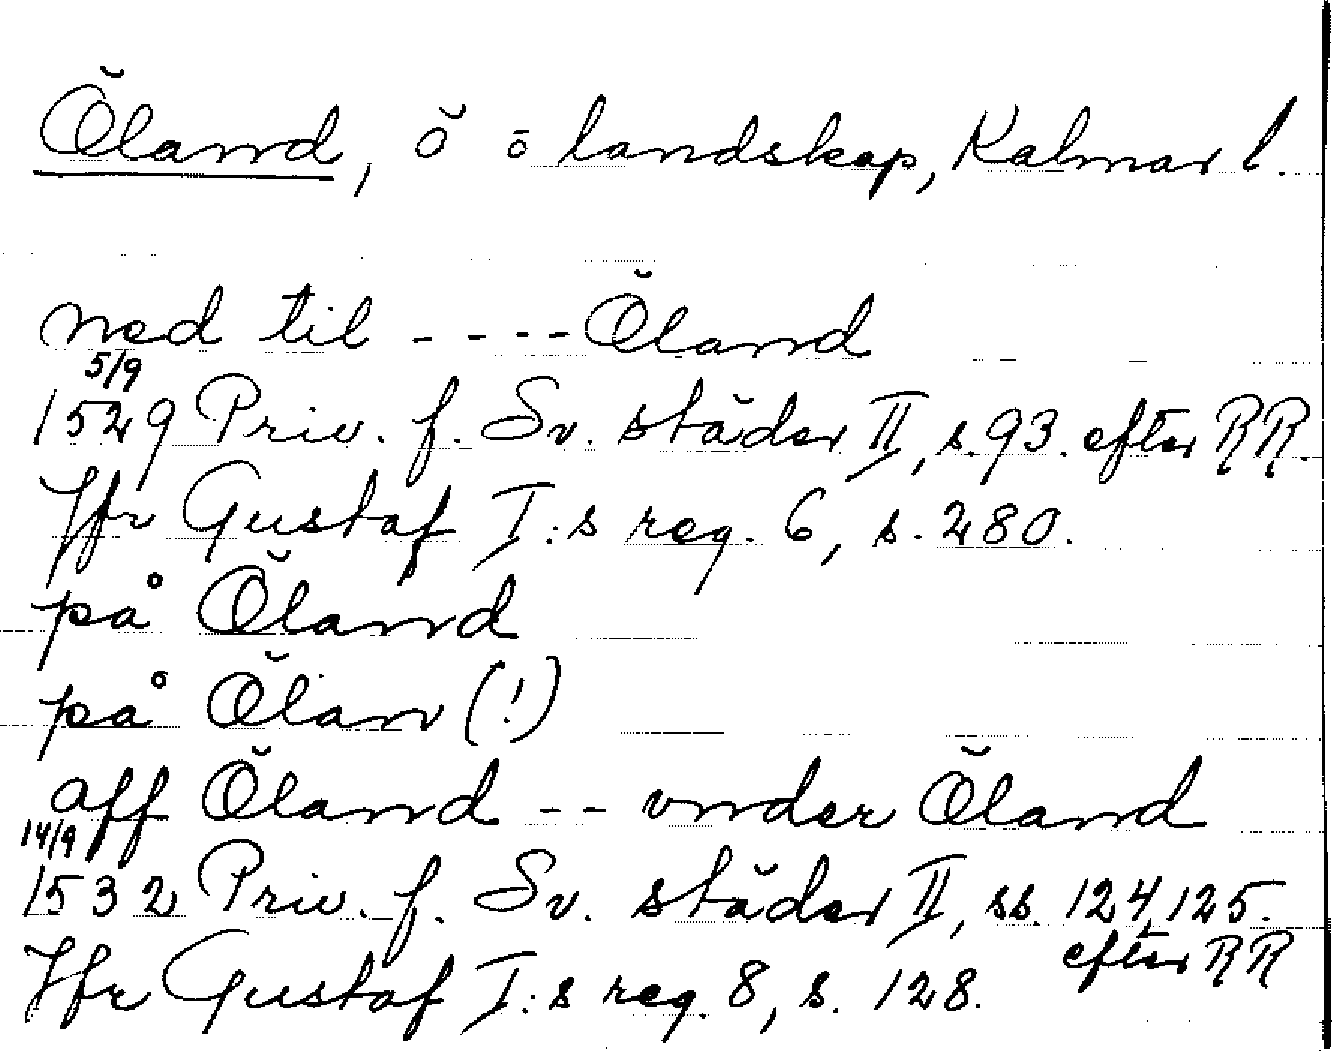 Öland, ö o landskap, Kalmar l.
ned til ---- Öland
5/9
1529 Priv. f. Sv. städer II, s. 93. efter RR.
Jfr Gustaf I:s reg. 6, s. 280.
på Öland
på Ölan (!)
aff Öland -- vnder Öland
14/9
1532 Priv. f. Sv. städer II, ss. 124, 125.
efter RR
Jfr Gustaf I:s reg. 8, s. 128.